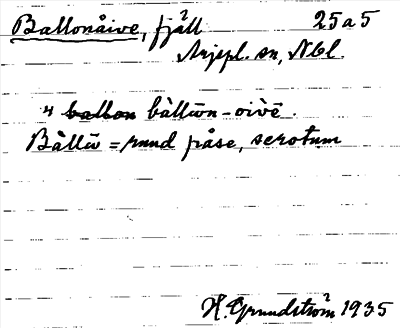 Ballonåive, fjäll 25 a 5
Arjepl. sn, Nbl.
ballon bàllōn-oivē.
Bàllū = rund påse, scrotum
H. Grundström 1935